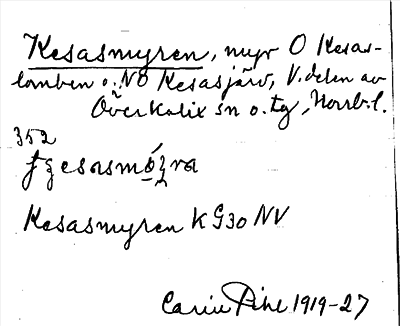 Kesasmyren, myr O Kesas-
lomben o. NO Kesasjärv, V. delen av
Överkalix sn o. tg, Norrb. l.
352
Kesasmyren K G30 NV
Carin Pihl 1919-27